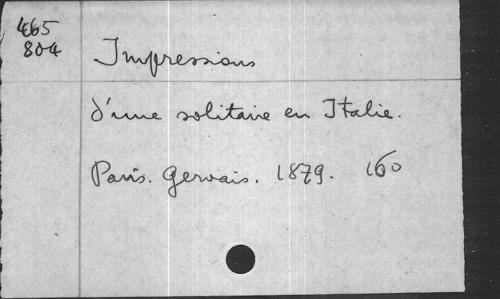 465
804
Impressions
d'une solitaire en Italie.
Paris. Gervais. 1879. 16°